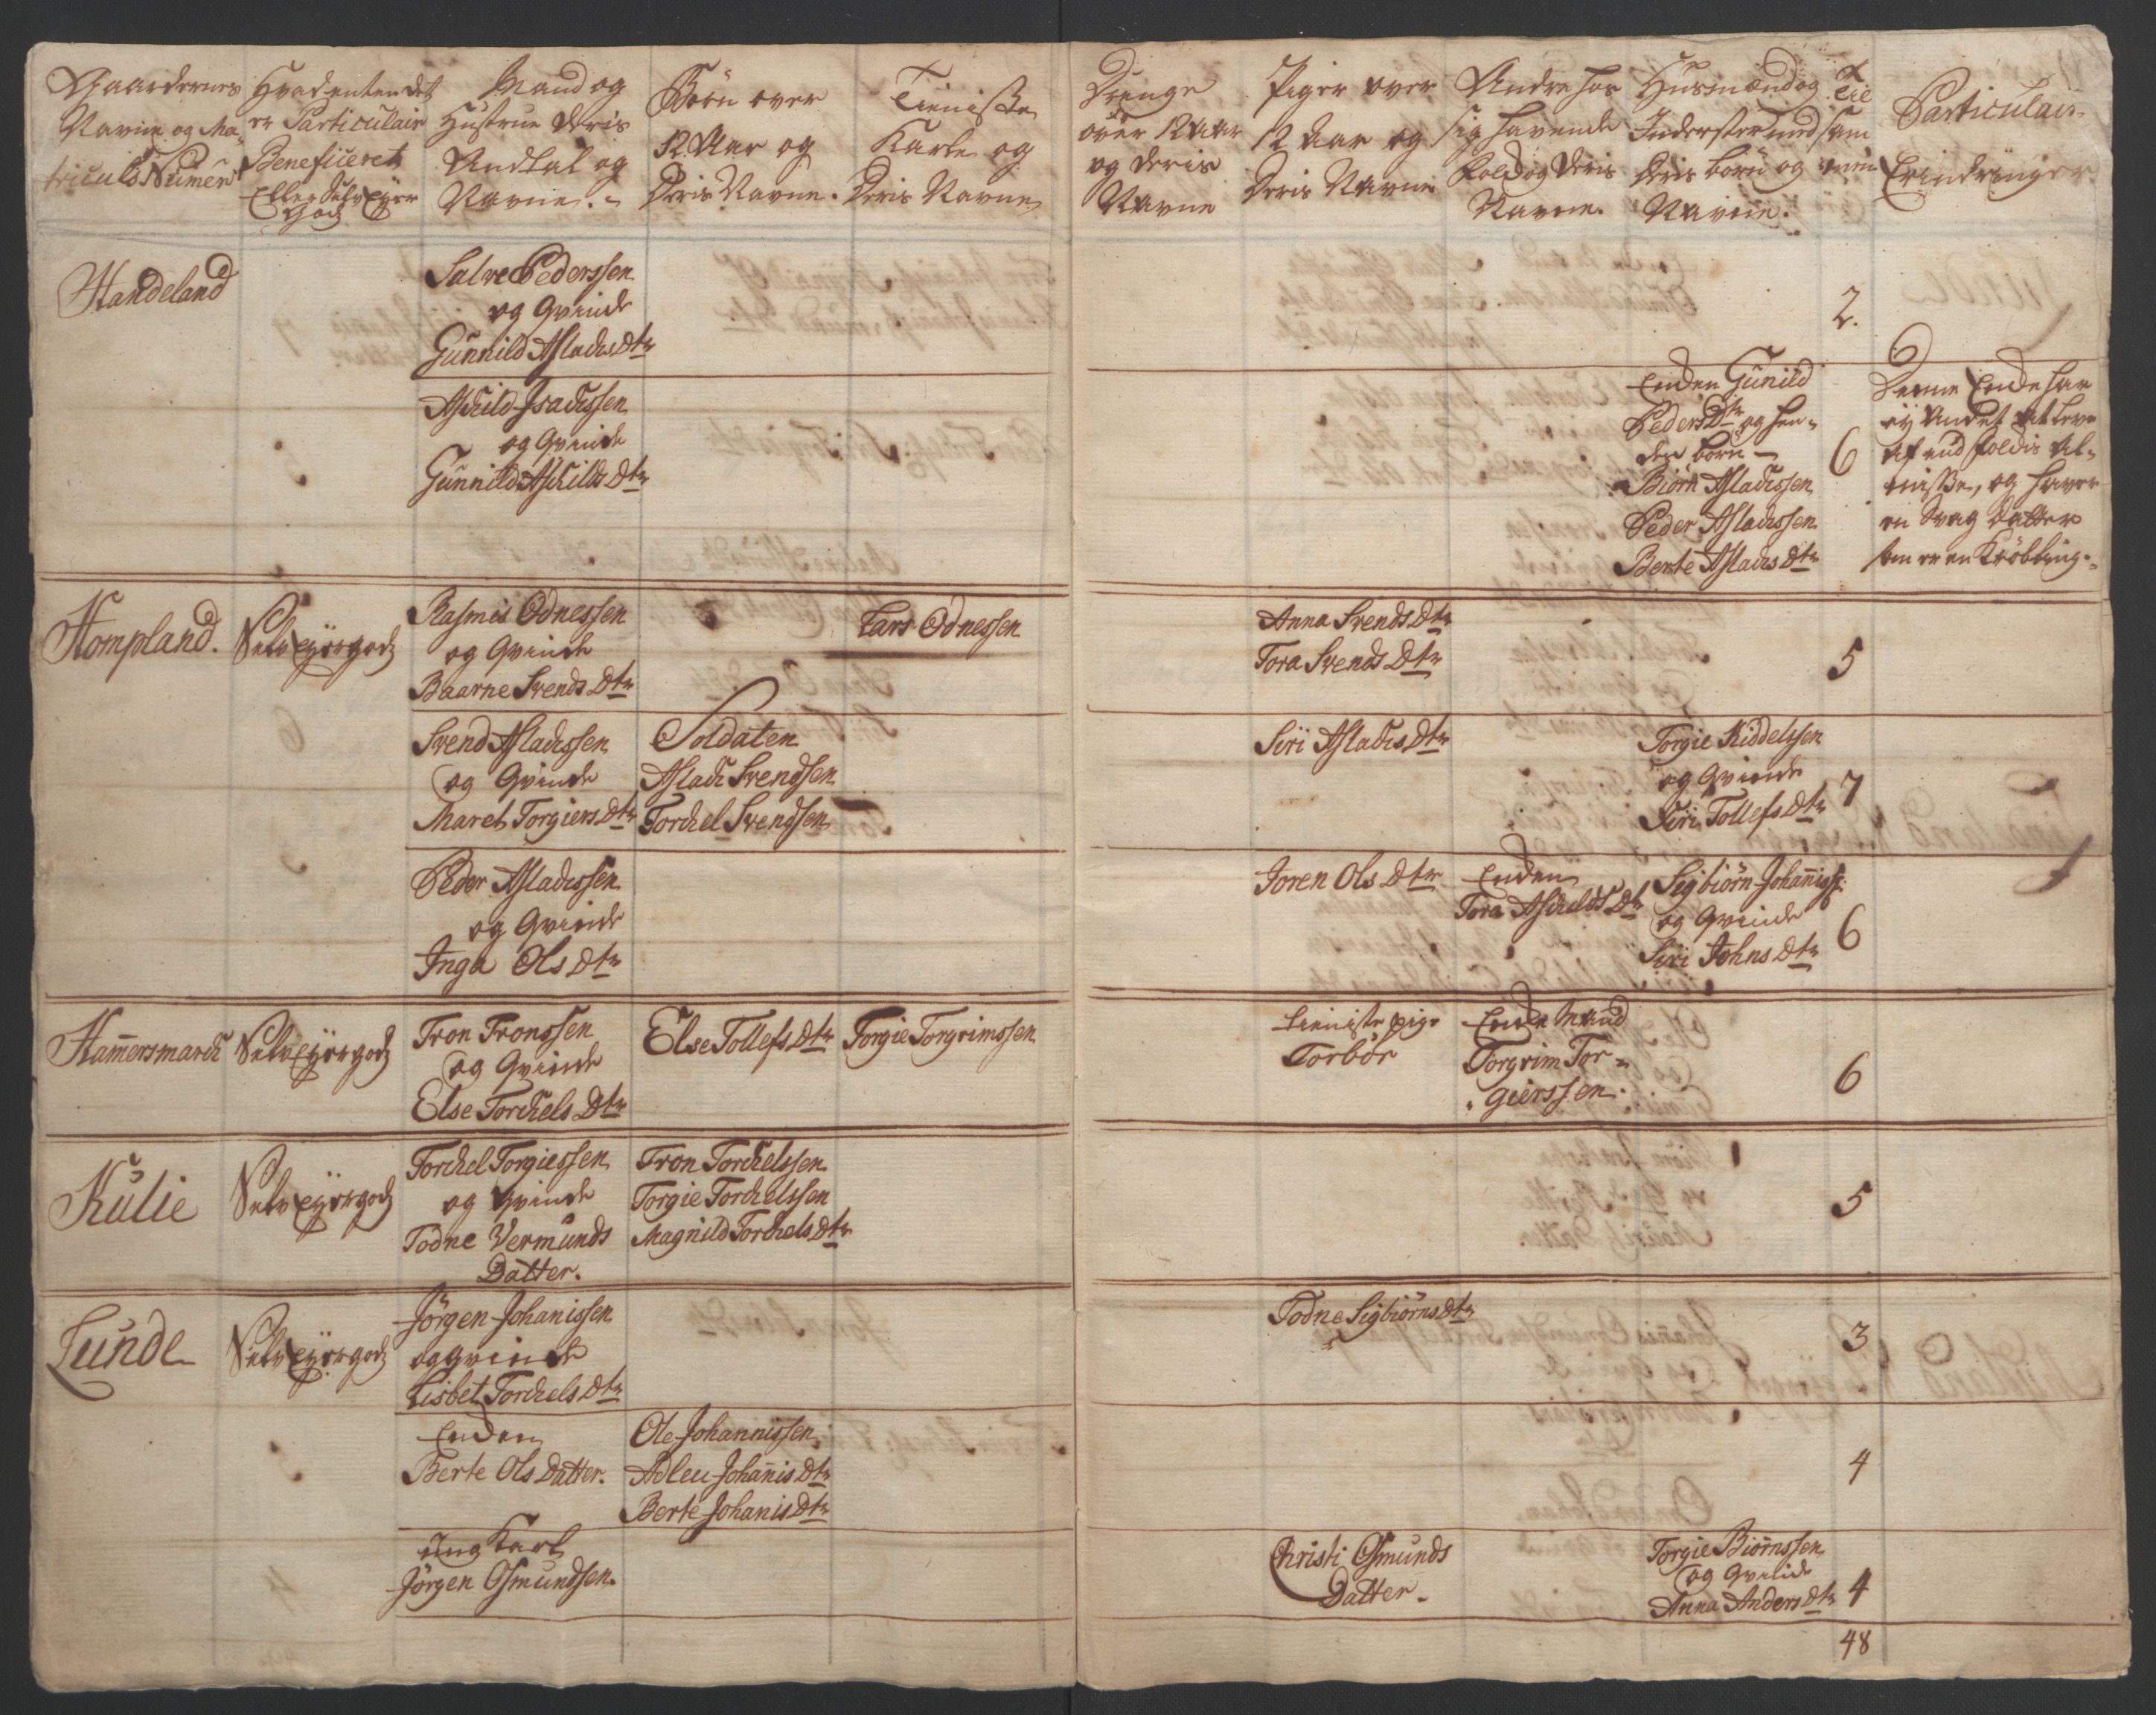 Gaardernes
Navne og Ma-
triculs Numer
Hvad enten det
er Particulair
Beneficeret
Eller Selv Eyer
God
Mand og
Hustrue Deris
Andtal og
Navne.
Börn over
12 Aar og
Deris Navne.
Tieniste
Karle og
Deris Navne
Drenge
over 12 Aar
og deris
Navne
Piger over
12 Aar og
Deris Navne
Andre hos
sig havende
Folck og Deris
Navne.
Husmænd og
Inderster med
Deris börn og
Navne.
Til
sam
men
Particulair
Erindringer.
Handeland
Salve Pederssen
og Qvinde
Gunnild Aslacks Dtr
2.
Aschild Isachssen
og Qvinde
Gunnild Aschilds Dtr
Encken Gunild
Peders Dtr og hen-
des börn
Biörn Aslachssen
Peder Aslachssen
Berte Aslachs Dtr
6
Denne Encke har
ey Andet at leve
af end Folckis Al-
misse, og haver
en svag Datter
som er en Kröbling.
Hompland.
Selv Eyergods
Rasmis Odnessen
og Qvinde
Baarne Svends Dtr
Lars Odnessen
Anna Svends Dtr
Tora Svends Dtr
5
Svend Aslachssen
og Qvinde
Maret Torgiers Dtr
Soldaten
Aslach Svendsen
Torchel Svendsen
Siri Aslachs Dtr
Torgie Kiddelssen
og Qvinde
Siri Tollefs Dtr
7
Peder Aslachssen
og Qvinde
Inga Ols Dtr
Joren Ols Dtr
Encken
Tora Aschelds Dtr
Sigbiörn Johanniss:
og Qvinde
Siri Johns Dtr
6
Hamersmarch
Selv Eyergods
Tron Tronssen
og Qvinde
Else Torchels Dtr
Else Tollefs Dtr
Torgie Torgrimssen
Tieniste pige
Torbör
Enke Mand
Torgrim Tor-
gierssen.
6
Kulie
Selv Eyergods
Torchel Torgiessen
og Qvinde
Todne Vermunds
Datter.
Tron Torchelssen
Torgie Torchelssen
Magnild Torchels Dtr
5
Lunde
Selv Eyergods
Jörgen Johanissen
og Qvinde
Lisbet Torchels Dtr
Todne Sigbiörns Dtr
3
Encken
Berte Ols Datter.
Ole Johannissen
Adleu Johanis Dtr
Berte Johanis Dtr
4
ung Karl
Jörgen Osmundsen.
Christi Osmunds
Datter.
Torgie Biörnssen
og Qvinde
Anna Anders Dtr
4
48